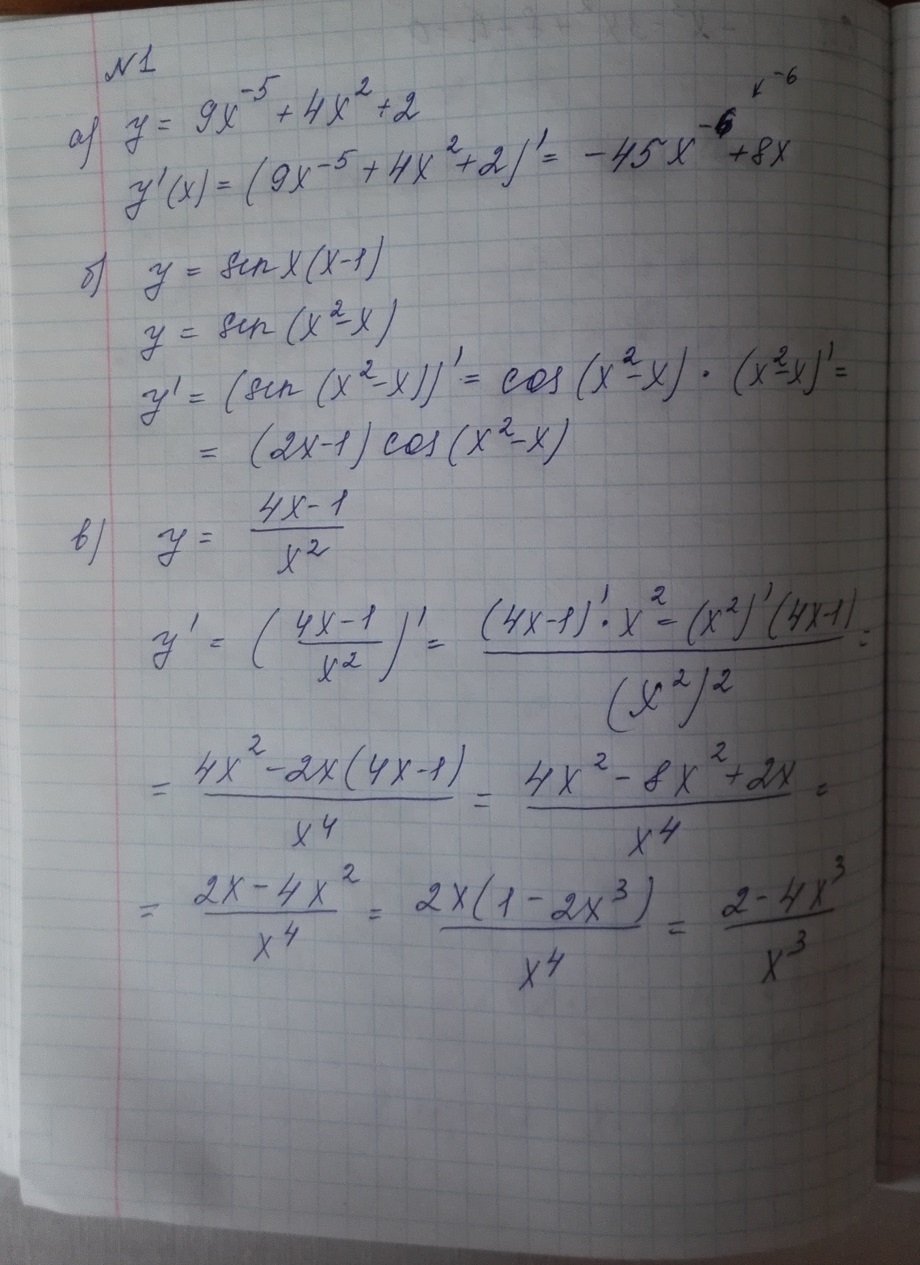 №1
а) y = 9x⁻⁵ + 4x² + 2
y'(x) = (9x⁻⁵ + 4x² + 2)' = -45x⁻⁶ + 8x
-6
б) y = sin x(x-1)
y = sin(x²-x)
y' = (sin(x²-x))' = cos(x²-x) · (x²-x)' =
= (2x-1) cos(x²-x)
в) y = (4x-1)/x²
y' = ((4x-1)/x²)' = ((4x-1)' · x² - (x²)'(4x-1))/(x²)² =
= (4x² - 2x(4x-1))/x⁴ = (4x² - 8x² + 2x)/x⁴ =
= (2x - 4x²)/x⁴ = (2x(1 - 2x³))/x⁴ = (2 - 4x³)/x³